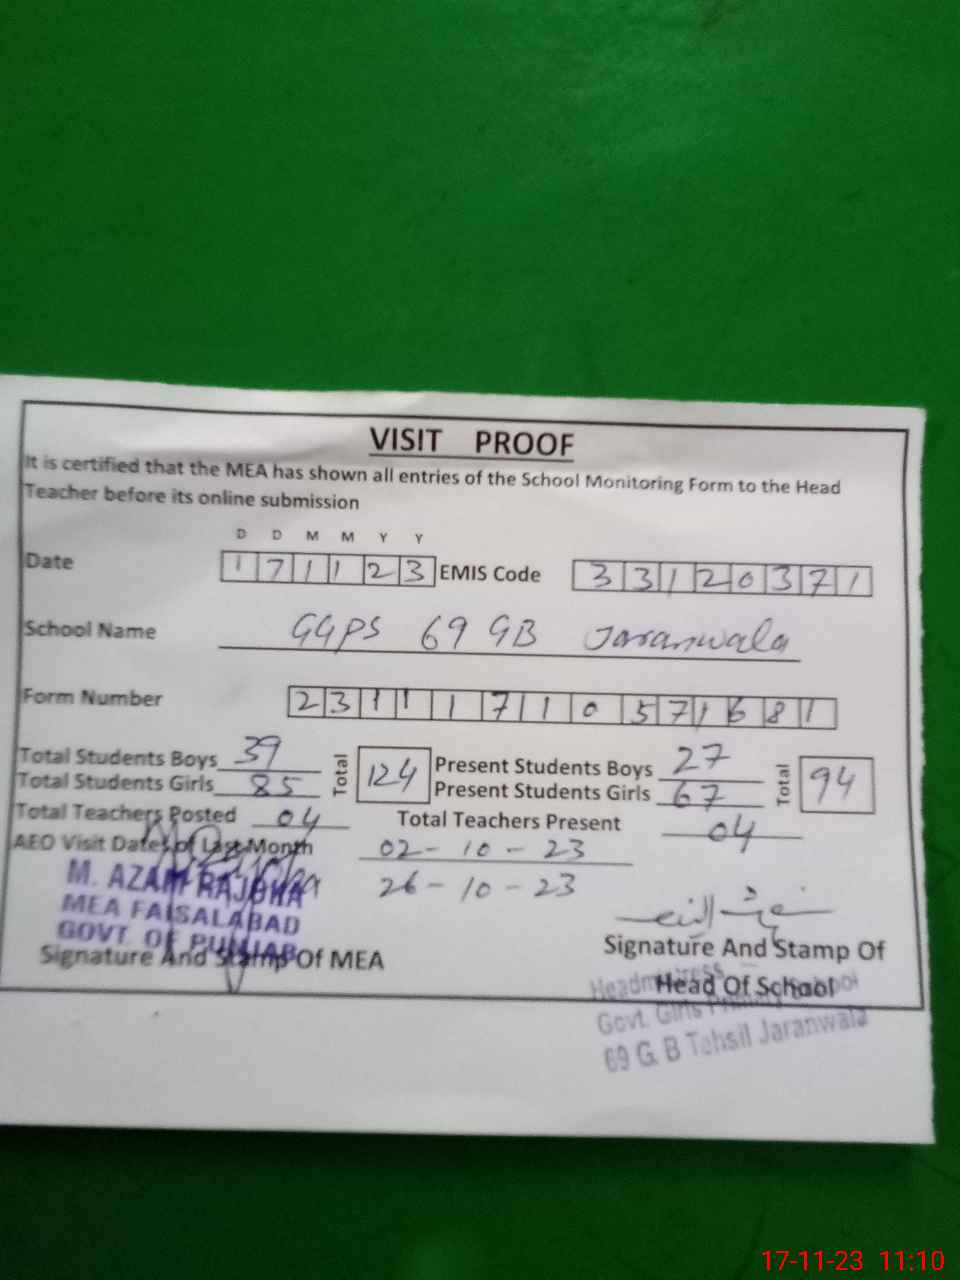 VISIT PROOF
It is certified that the MEA has shown all entries of the School Monitoring Form to the Head
Teacher before its online submission
D D M M Y Y
Date 1 7 1 1 2 3 EMIS Code 3 3 1 2 0 3 7 1
School Name GGPS 69 GB Jaranwala
Form Number 2 3 1 1 1 7 1 0 5 7 1 6 8 1
Total Students Boys 39 Total 124 Present Students Boys 27 Total 94
Total Students Girls 85 Present Students Girls 67
Total Teachers Posted 04 Total Teachers Present 04
AEO Visit Dates of Last Month 02-10-23
26-10-23
M. AZAM RAJOHA
MEA FAISALABAD
GOVT. OF PUNJAB
Signature And Stamp Of MEA
Signature And Stamp Of
Head Of School
Headmistress
Govt. Girls Primary School
69 G.B Tehsil Jaranwala
17-11-23 11:10